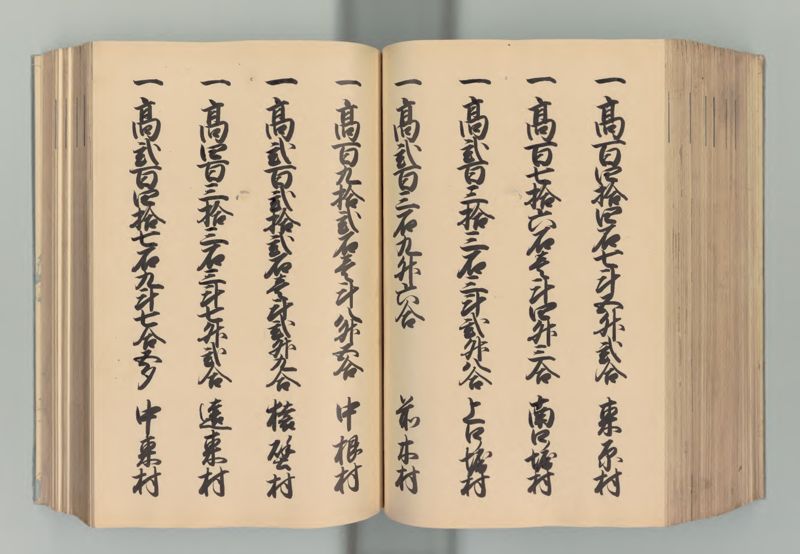 一高百四拾四石七斗五升弐合 東原村
一高百七拾六石壱斗四升三合 南口堀村
一高弐百三拾三石三斗弐升八合 上口堀村
一高弐百三石九升六合 前木村
一高百九拾弐石壱斗八升五合 中根村
一高弐百弐拾弐石壱斗弐升九合 村
一高四百三拾三石三斗七升弐合 遠東村
一高弐百四拾七石九斗七合五夕 中東村